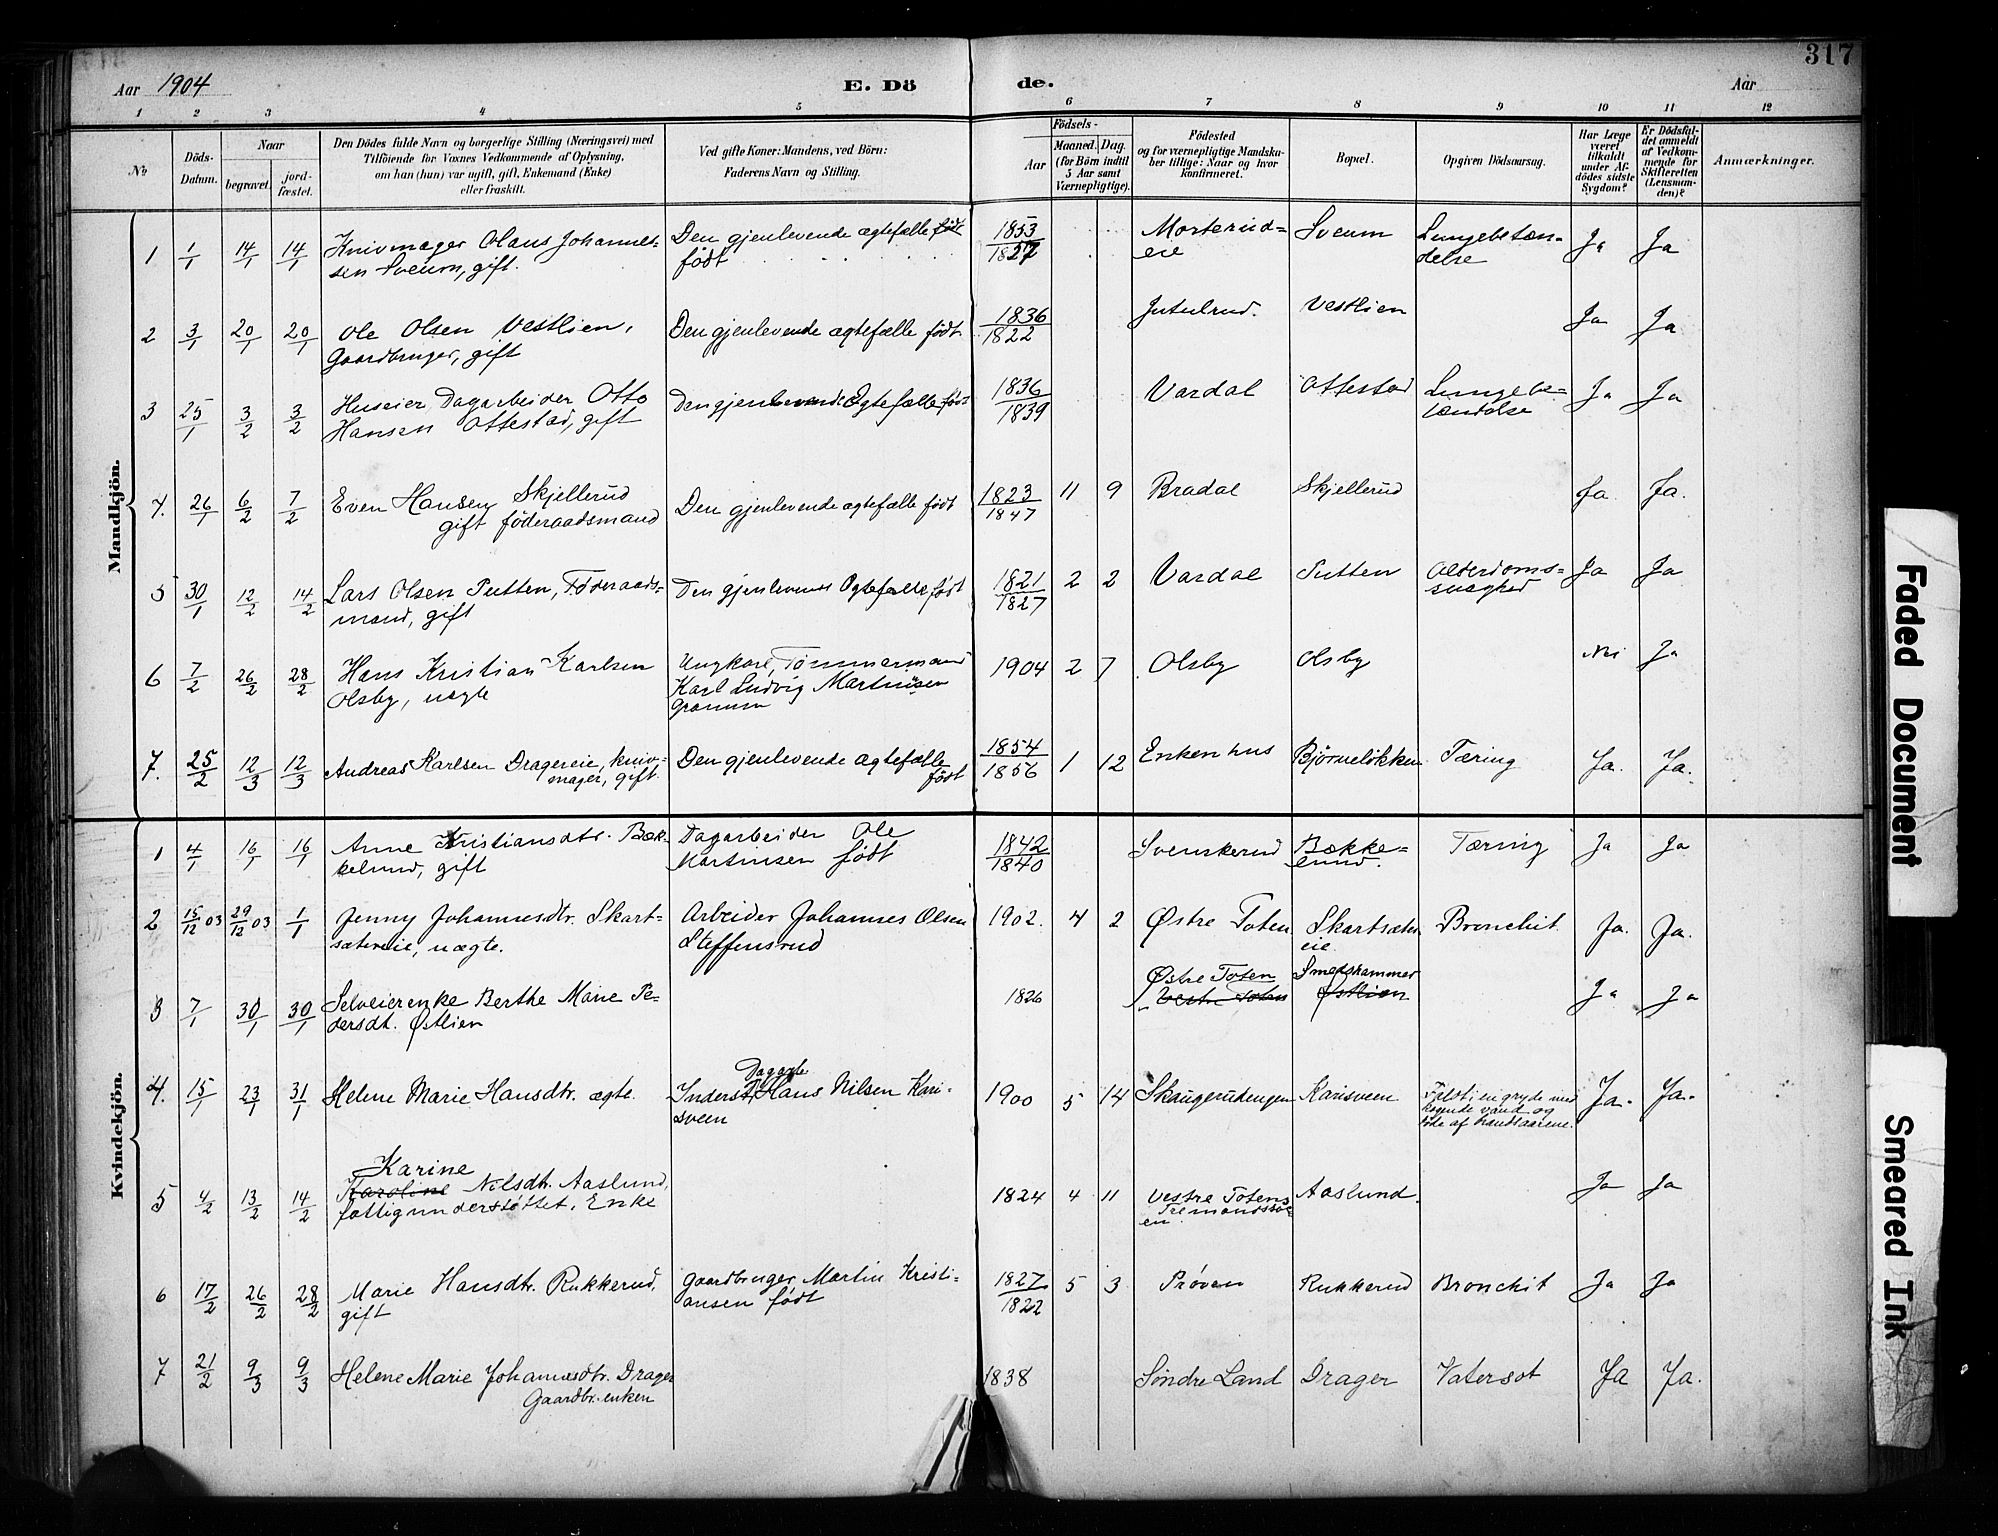 317
Aar 1904
E. Dö
de.
Aar
1 2 3 4 5 6 7 8 9 10 11 12
No
Döds-
Datum.
Naar
begravet.
jord-
fæstet.
Den Dödes fulde Navn og borgerlige Stilling (Næringsvei) med
Tilföiende for Voxnes Vedkommende af Oplysning,
om han (hun) var ugift, gift, Enkemand (Enke)
eller fraskilt.
Ved gifte Koner: Mandens, ved Börn:
Faderens Navn og Stilling.
Födsels-
Aar
Maaned.
Dag.
(for Börn indtil
5 Aar samt
Værnepligtige).
Födested
og for værnepligtige Mandska-
ber tillige: Naar og hvor
konfirmeret.
Bopæl.
Opgiven Dödsaarsag.
Har Læge
været
tilkaldt
under Af-
dödes sidste
Sygdom?
Er Dödsfal-
det anmeldt
af Vedkom-
mende for
Skifteretten
(Lensman-
den)?
Anmærkninger.
Mandkjön.
1 1/1 14/1 14/1 Knivmager Olaus Johannes-
sen Sveum, gift.
Den gjenlevende ægtefælle født
født
1853
1827
Morterud-
eie
Sveum
Lungebetæn-
delse
Ja Ja
2 3/1 20/1 20/1 Ole Olsen Vestlien,
Gaardbruger, gift
Den gjenlevende ægtefælle født
1836
1822
Jutulrud. Vestlien Ja Ja
3 25/1 3/2 3/2 Huseier Dagarbeider Otto
Hansen Ottestad, gift
Den gjenlevende Ægtefælle født
1836
1839
Vardal Ottestad
Lungebe-
tændelse
Ja Ja
4. 26/1 6/2 7/2 Even Hansen Skjellerud
gift føderaadsmand
Den gjenlevende ægtefælle født
1823
1847
11 9 Bradal Skjellerud Ja. Ja.
5 30/1 12/2 14/2 Lars Olsen Tutten, Føderaads-
mand, gift
Den gjenlevende Ægtefælle født
1821
1827
2 2 Vardal Tutten
Alderdoms-
svaghed
Ja Ja
6 7/2 26/2 28/2 Hans Kristian Karlsen
Olsby, uægte
Ungkarl, Tømmermand
Karl Ludvig Martinsen
Granum
1904 2 7 Olsby Olsby Nei Ja
7. 25/2 12/3 12/3 Andreas Karlsen Dragereie, kniv-
mager, gift.
Den gjenlevende ægtefælle
født
1854
1856
1 12 Enkenhus Bjørneløkken Tæring Ja. Ja.
Kvindekjön.
1 4/1 16/1 16/1 Anne Kristiansdtr. Bæk-
kelund, gift
Dagarbeider Ole
Martinsen født
1842
1840
Svenskerud
Bække-
lund.
Tæring Ja Ja
2 15/12 03 29/12 03 1/1 Jenny Johannesdtr. Skart-
sætereie, uægte.
Arbeider Johannes Olsen
Steffensrud
1902. 4 2 Østre Toten
Skartsæter
eie
Bronchit Ja. Ja.
3 7/1 30/1 30/1 Selveierenke Berthe Marie Pe-
dersdt. Østlien
1826
Østre Toten
Vestre Toten
Smedshammer
Østlien
Ja Ja
4. 15/1 23/1 31/1 Helene Marie Hansdtr. ægte.
Dagarb
Inderst, Hans Nilsen Kari-
sveen
1900 5 14 Skaugerudengen Karisveen
Faldt i en gryde med
kogende vand og
døde af brandsaarene.
Ja. Ja.
5 4/2 13/2 14/2
Karine
Karoline Nilsdtr. Aaslund,
fattigunderstøttet, Enke
1824 4 11
Vestre Totens
Aaslund. Ja Ja
6 17/2 26/2 28/2 Marie Hansdtr. Rukkerud,
gift
Gaardbruger Martin Kristi-
ansen født
1827
1822
5 3 Prøven Rukkerud Bronchit Ja Ja
7 21/2 9/3 9/3 Helene Marie Johannesdtr. Drager
Gaardbr. enken
1838 Søndre Land Drager Vatersot Ja Ja.
Faded Document
Smeared Ink